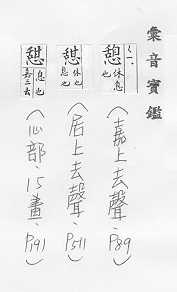 彙音寶鑑
憩 休息也
(嘉上去聲、P89)
憇 休也息也
(居上去聲、P511)
憇 息也 嘉三去
(心部、15畫、P191)